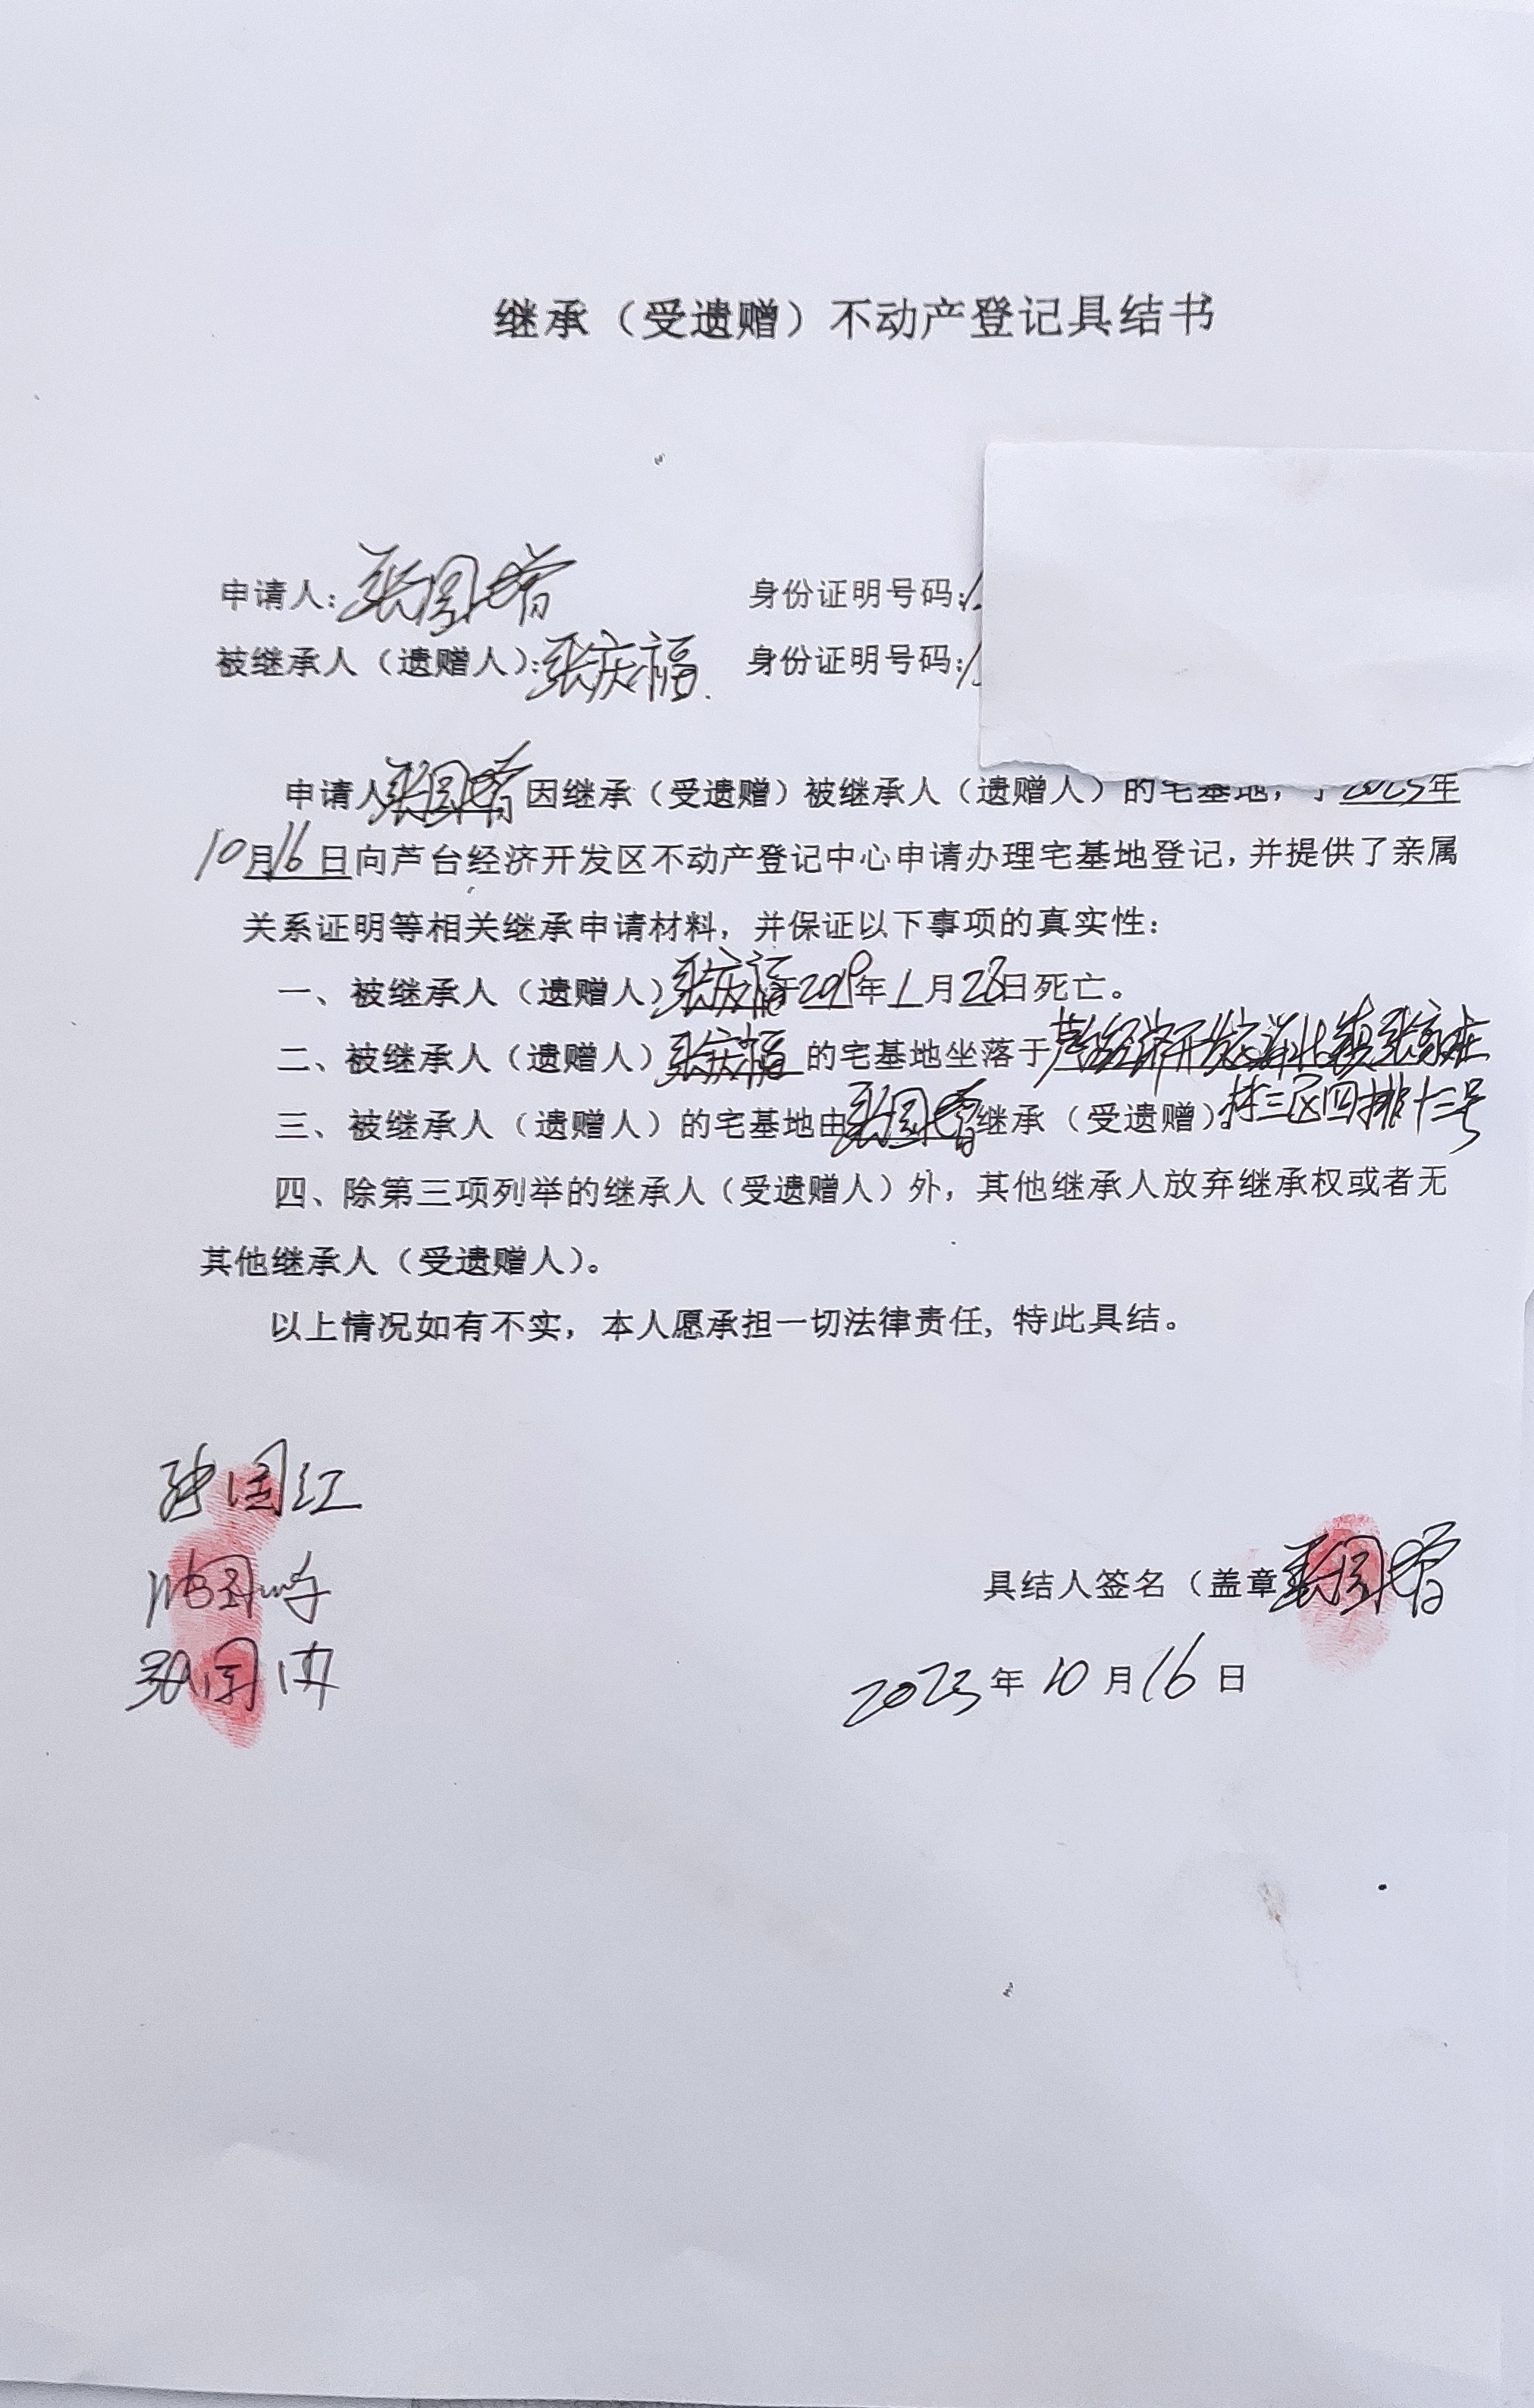 继承（受遗赠）不动产登记具结书
申请人：张国增 身份证明号码：1
被继承人（遗赠人）：张庆福 身份证明号码：1
申请人张国增因继承（受遗赠）被继承人（遗赠人）的宅基地，于2023年
10月16日向芦台经济开发区不动产登记中心申请办理宅基地登记，并提供了亲属
关系证明等相关继承申请材料，并保证以下事项的真实性：
一、被继承人（遗赠人）张庆福于2019年1月28日死亡。
二、被继承人（遗赠人）张庆福的宅基地坐落于芦台经济开发区海北镇张家庄
村三区四排十三号
三、被继承人（遗赠人）的宅基地由张国增继承（受遗赠）。
四、除第三项列举的继承人（受遗赠人）外，其他继承人放弃继承权或者无
其他继承人（受遗赠人）。
以上情况如有不实，本人愿承担一切法律责任，特此具结。
张国江
具结人签名（盖章 张国增
张国
2023年10月16日